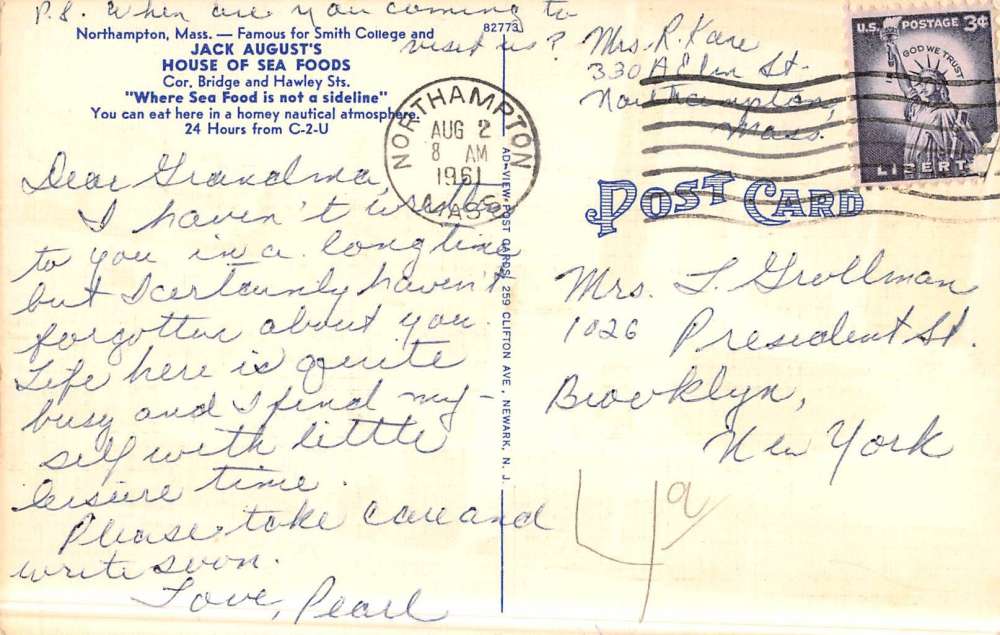 P.S. When are you coming to
visit us?
Northampton, Mass. — Famous for Smith College and
JACK AUGUST'S
HOUSE OF SEA FOODS
Cor. Bridge and Hawley Sts.
"Where Sea Food is not a sideline"
You can eat here in a homey nautical atmosphere.
24 Hours from C-2-U
82773
Dear Grandma,
I haven't written
to you in a long time
but I certainly haven't
forgotten about you.
Life here is quite
busy and I find my-
self with little
leisure time.
Please take care and
write soon.
Love, Pearl
NORTHAMPTON
AUG 2
8 AM
1961
MASS
AD-VIEW POST CARDS, 259 CLIFTON AVE., NEWARK, N. J.
Mrs. R. Kare
330 A Elm St.
Northampton
Mass.
U.S. POSTAGE 3¢
IN GOD WE TRUST
LIBERTY
POST CARD
Mrs. L. Grollman
1026 President St.
Brooklyn,
New York
4a